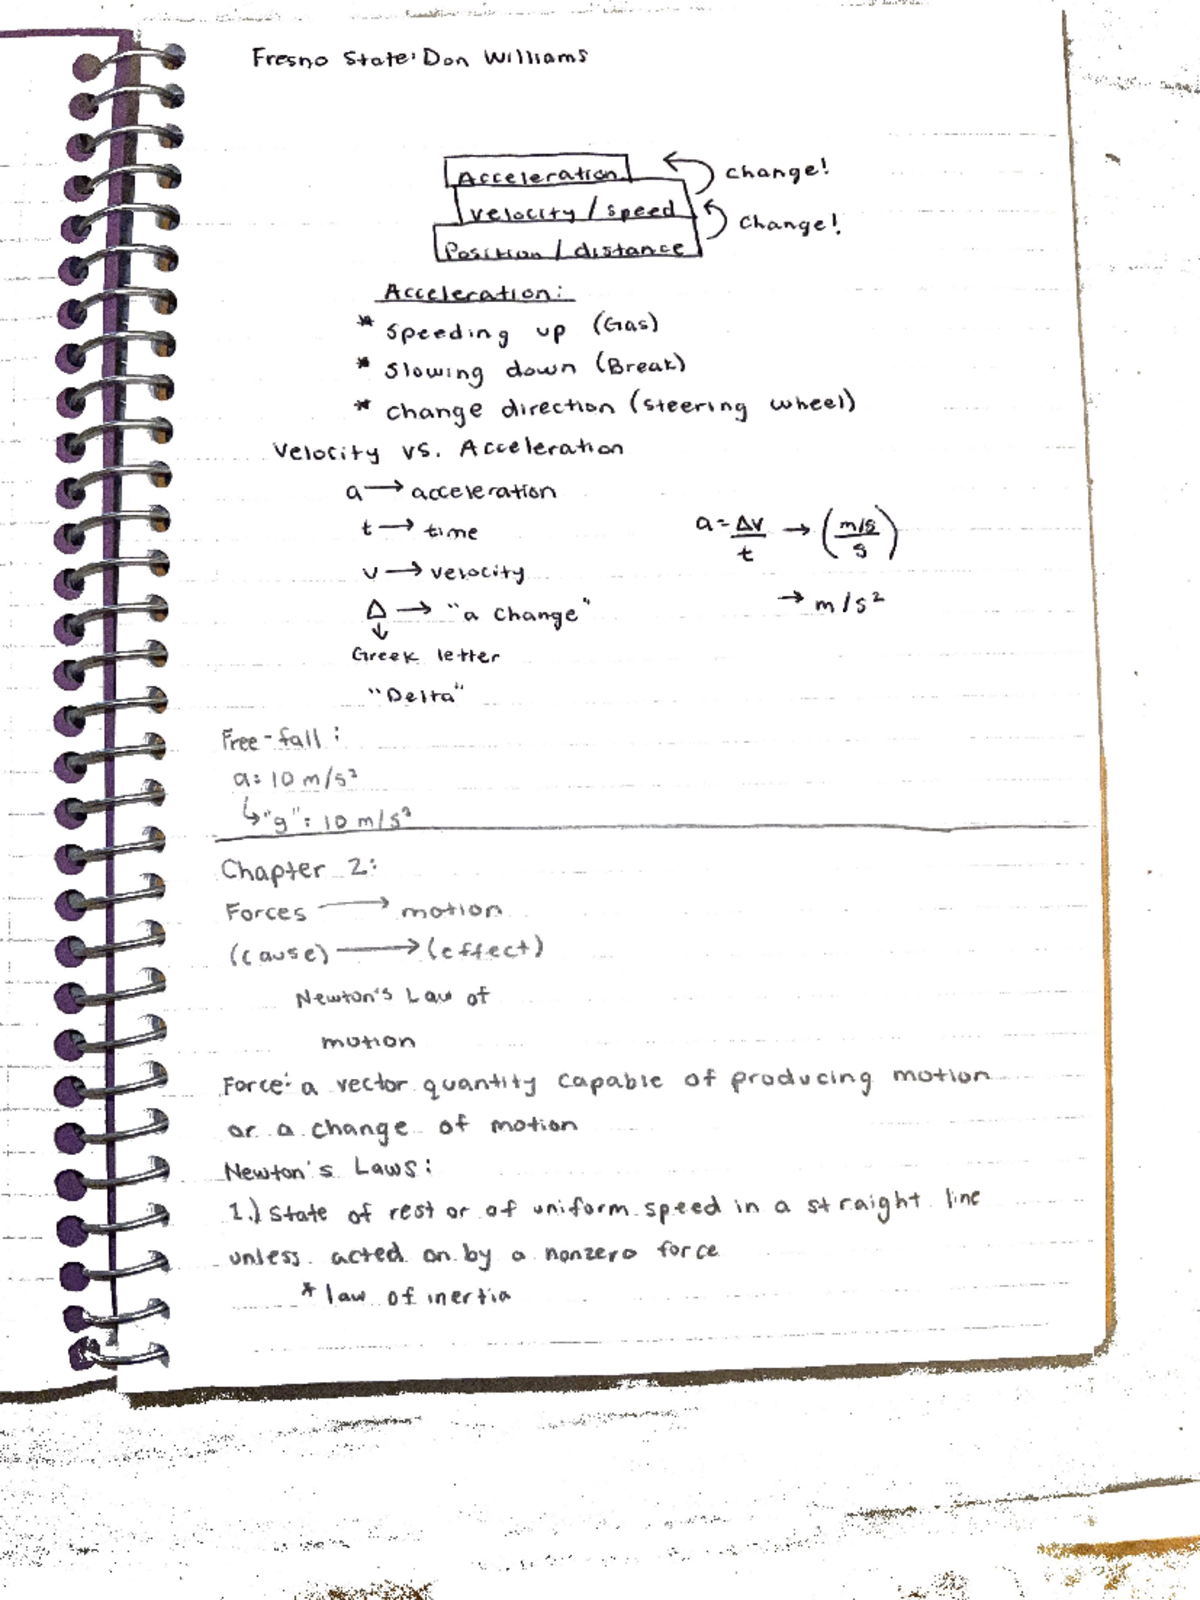 Fresno State: Don Williams
Acceleration
change!
velocity / speed
change!
Position / distance
Acceleration:
* speeding up (Gas)
* slowing down (Break)
* change direction (steering wheel)
Velocity vs. Acceleration
a → acceleration
t → time
a = Δv/t → (m/s/s)
v → velocity
Δ → "a change"
→ m/s²
↓
Greek letter
"Delta"
Free-fall:
a: 10 m/s²
↳ "g": 10 m/s²
Chapter 2:
Forces → motion
(cause) → (effect)
Newton's Law of
motion
Force: a vector quantity capable of producing motion
or a change of motion
Newton's Laws:
1.) state of rest or of uniform speed in a straight line
unless acted on by a nonzero force
* law of inertia